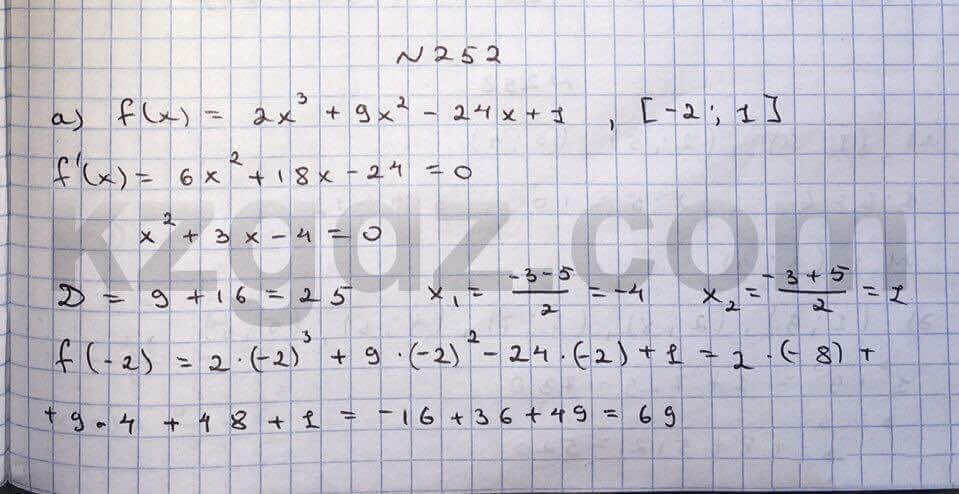 N 252
а) f(x) = 2x³ + 9x² - 24x + 1 , [-2; 1]
f'(x) = 6x² + 18x - 24 = 0
x² + 3x - 4 = 0
D = 9 + 16 = 25 x₁ = (-3-5)/2 = -4 x₂ = (-3+5)/2 = 1
f(-2) = 2·(-2)³ + 9·(-2)² - 24·(-2) + 1 = 2·(-8) +
+ 9·4 + 48 + 1 = -16 + 36 + 49 = 69
kzgdz.com